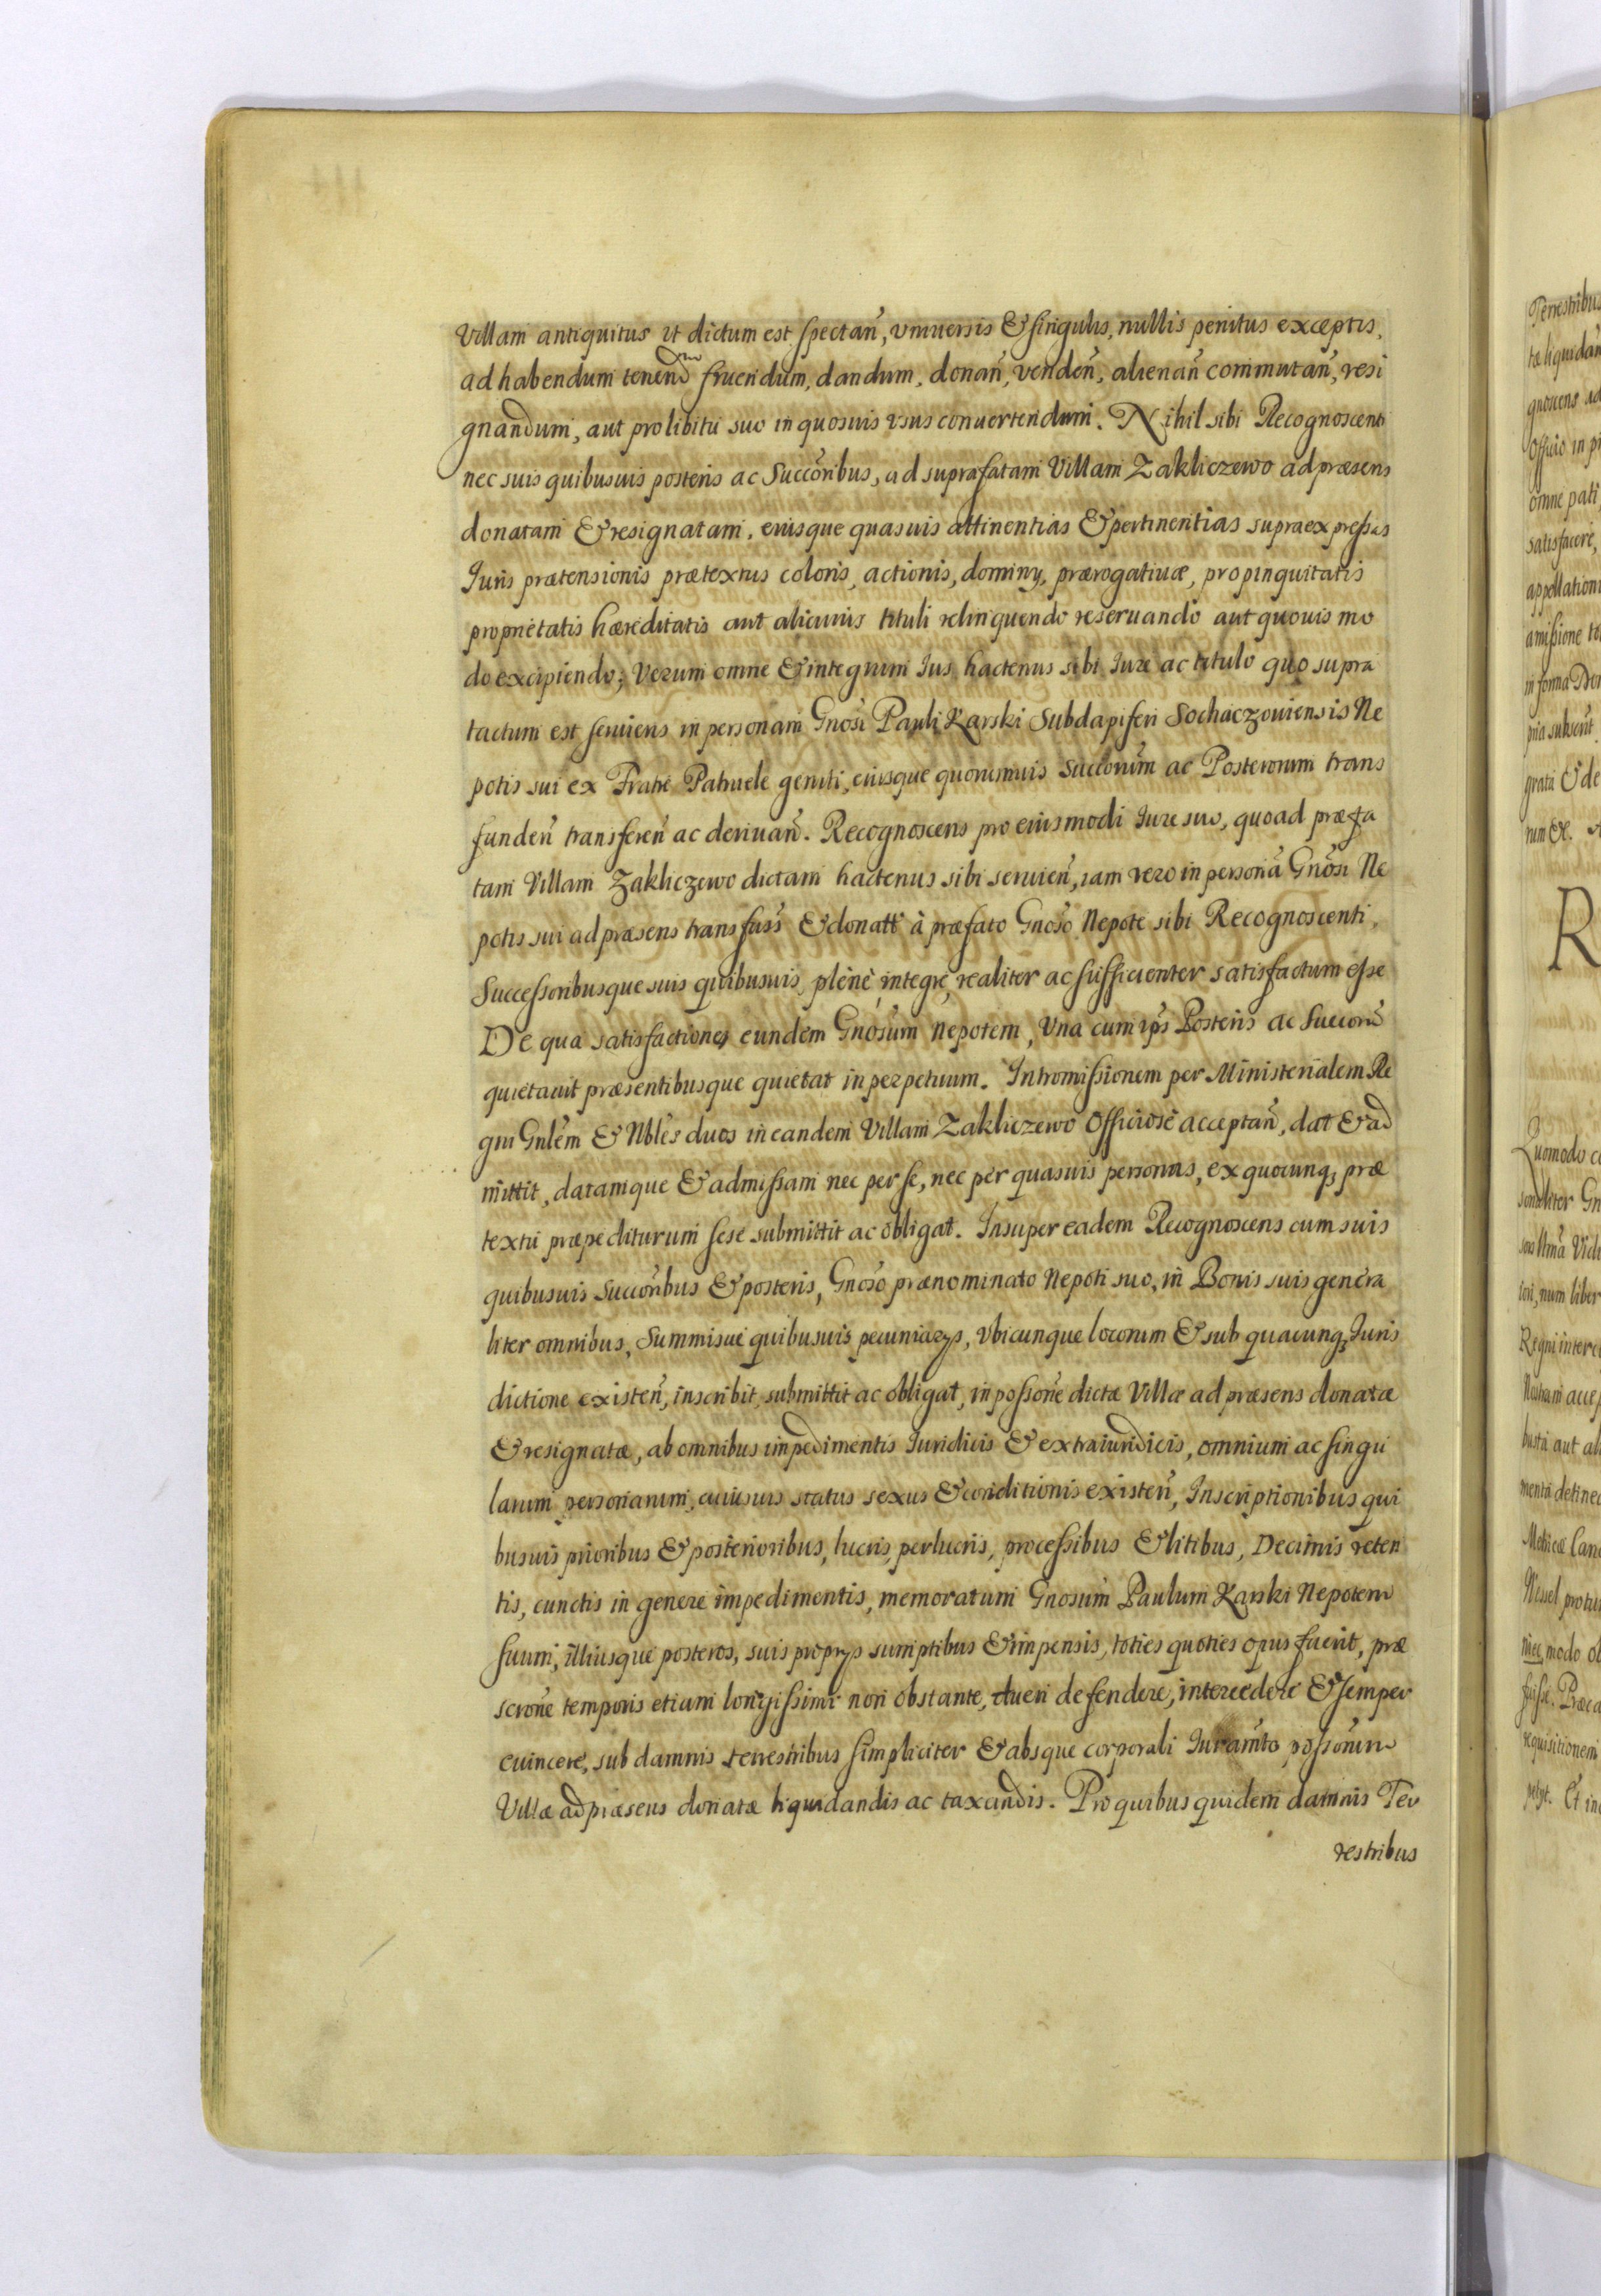 Villam antiquitus ut dictum est spectan̄, vniuersis & singulis, nullis penitus exceptis,
ad habendum tenend̄um fruendum, dandum, donan̄, venden̄, alienan̄ commutan̄, resi
gnandum, aut pro libitu suo in quosuis vsus conuertendum. Nihil sibi Recognoscenti
nec suis quibusuis posteris ac Succōribus, ad suprafatam Villam Zakliczewo ad præsens
donatam & resignatam, eiusque quasuis attinentias & pertinentias supra expressas
Iuris prætensionis prætextus coloris, actionis, dominÿ, prærogatiuæ, propinquitatis
proprietatis hæreditatis aut alicuius tituli relinquendo reseruando aut quouis mo
do excipiendo; Verum omne & integrum Ius hactenus sibi Iure ac titulo quo supra
tactum est seruiens in personam Gnōsi Pauli Karski Subdapiferi Sochaczouiensis Ne
potis sui ex Fratre Patruele geniti, eiusque quorumuis Succōrum ac Posterorum trans
funden̄ transferen̄ ac deriuan̄. Recognoscens pro eiusmodi Iure suo, quoad præfa
tam Villam Zakliczewo dictam hactenus sibi seruien̄, iam vero in personā Gnōsi Ne
potis sui ad præsens transfuss̄ & donatt̄ à præfato Gnōso Nepote sibi Recognoscenti,
Successoribusque suis quibusuis, plenè, integre, realiter ac sufficienter satisfactum esse
De qua satisfactione, eundem Gnōsum Nepotem, Vna cum ip̄s Posteris ac Succorū
quietauit præsentibusque quietat in perpetuum. Intromissionem per Ministerialem Re
gni Gnl̄em & Nbl̄es duos in eandem Villam Zakliczewo Officiosè acceptan̄, dat & ad
mittit, datamque & admissam nec per se, nec per quasuis personas, ex quocunq, præ
textu præpediturum sese submittit ac obligat. Insuper eadem Recognoscens cum suis
quibusuis Succōribus & posteris, Gnōso prænominato Nepoti suo, in Bonis suis genera
liter omnibus, Summisue quibusuis pecuniarÿs, Vbicunque locorum & sub quacunq, Iuris
dictione existen̄, inscribit, submittit ac obligat, in possōne dictæ Villæ ad præsens donatæ
& resignatæ, ab omnibus impedimentis Iuridicis & extraiuridicis, omnium ac singu
larum personarum, cuiusuis status sexus & conditionis existen̄, Inscriptionibus qui
busuis prioribus & posterioribus, lucris, perlucris, processibus & litibus, Decimis reten
tis, cunctis in genere impedimentis, memoratum Gnōsum Paulum Karski Nepotem
suum, illiusque posteros, suis proprÿs sumptibus & impensis, toties quoties opus fuerit, præ
scrōne temporis etiam longissimi non obstante, tueri defendere, intercedere & semper
euincere, sub damnis terrestribus simpliciter & absque corporali Iuramt̄o, possōnum
Villæ ad præsens donatæ liquidandis ac taxandis. Pro quibus quidem damnis Ter
restribus